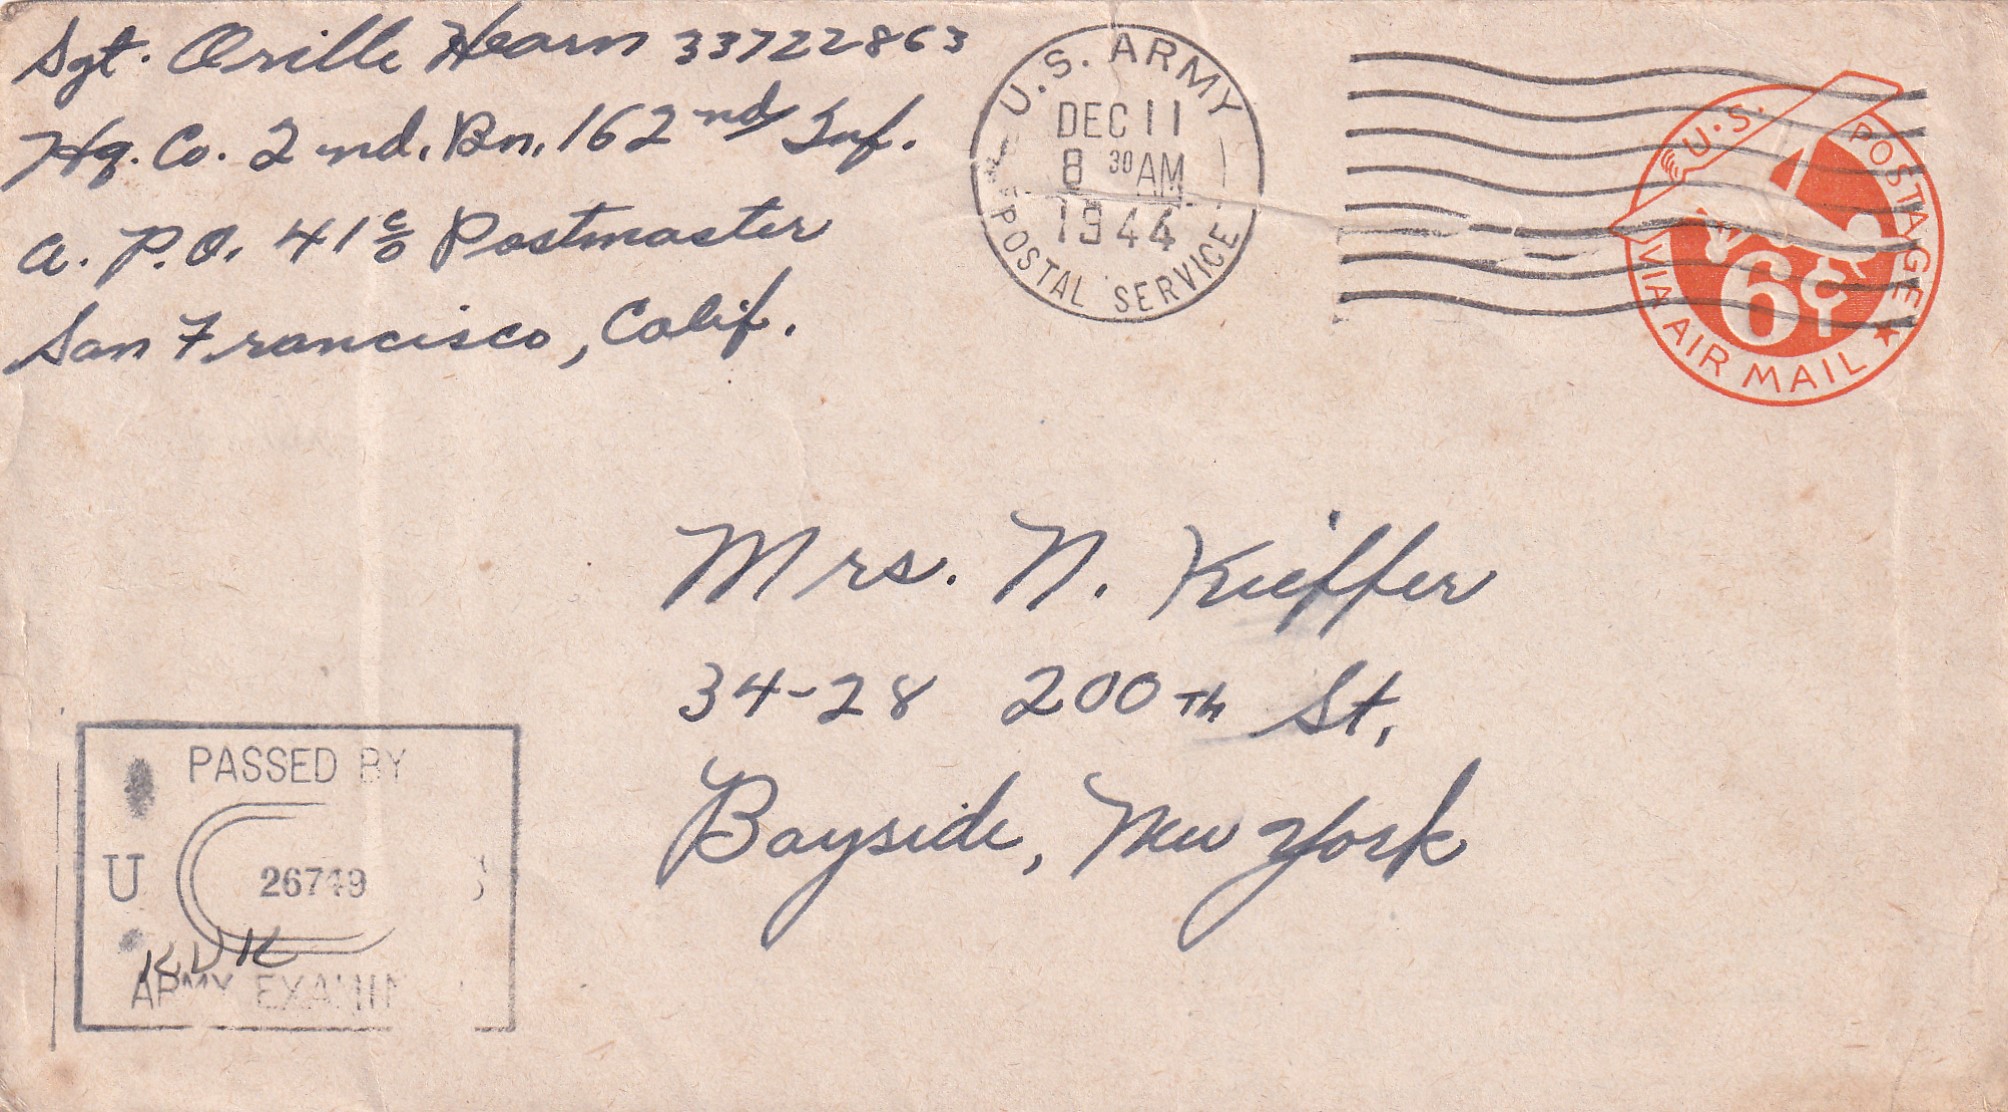 Sgt. Orille Hearn 33722863
Hq. Co. 2nd. Bn. 162nd Inf.
A. P. O. 41 c/o Postmaster
San Francisco, Calif.
U.S. ARMY
DEC 11
8 30 AM
1944
POSTAL SERVICE
U.S. POSTAGE
6¢
VIA AIR MAIL
Mrs. N. Kieffer
34-28 200TH St,
Bayside, New York
PASSED BY
U S
26749
ARMY EXAMIN